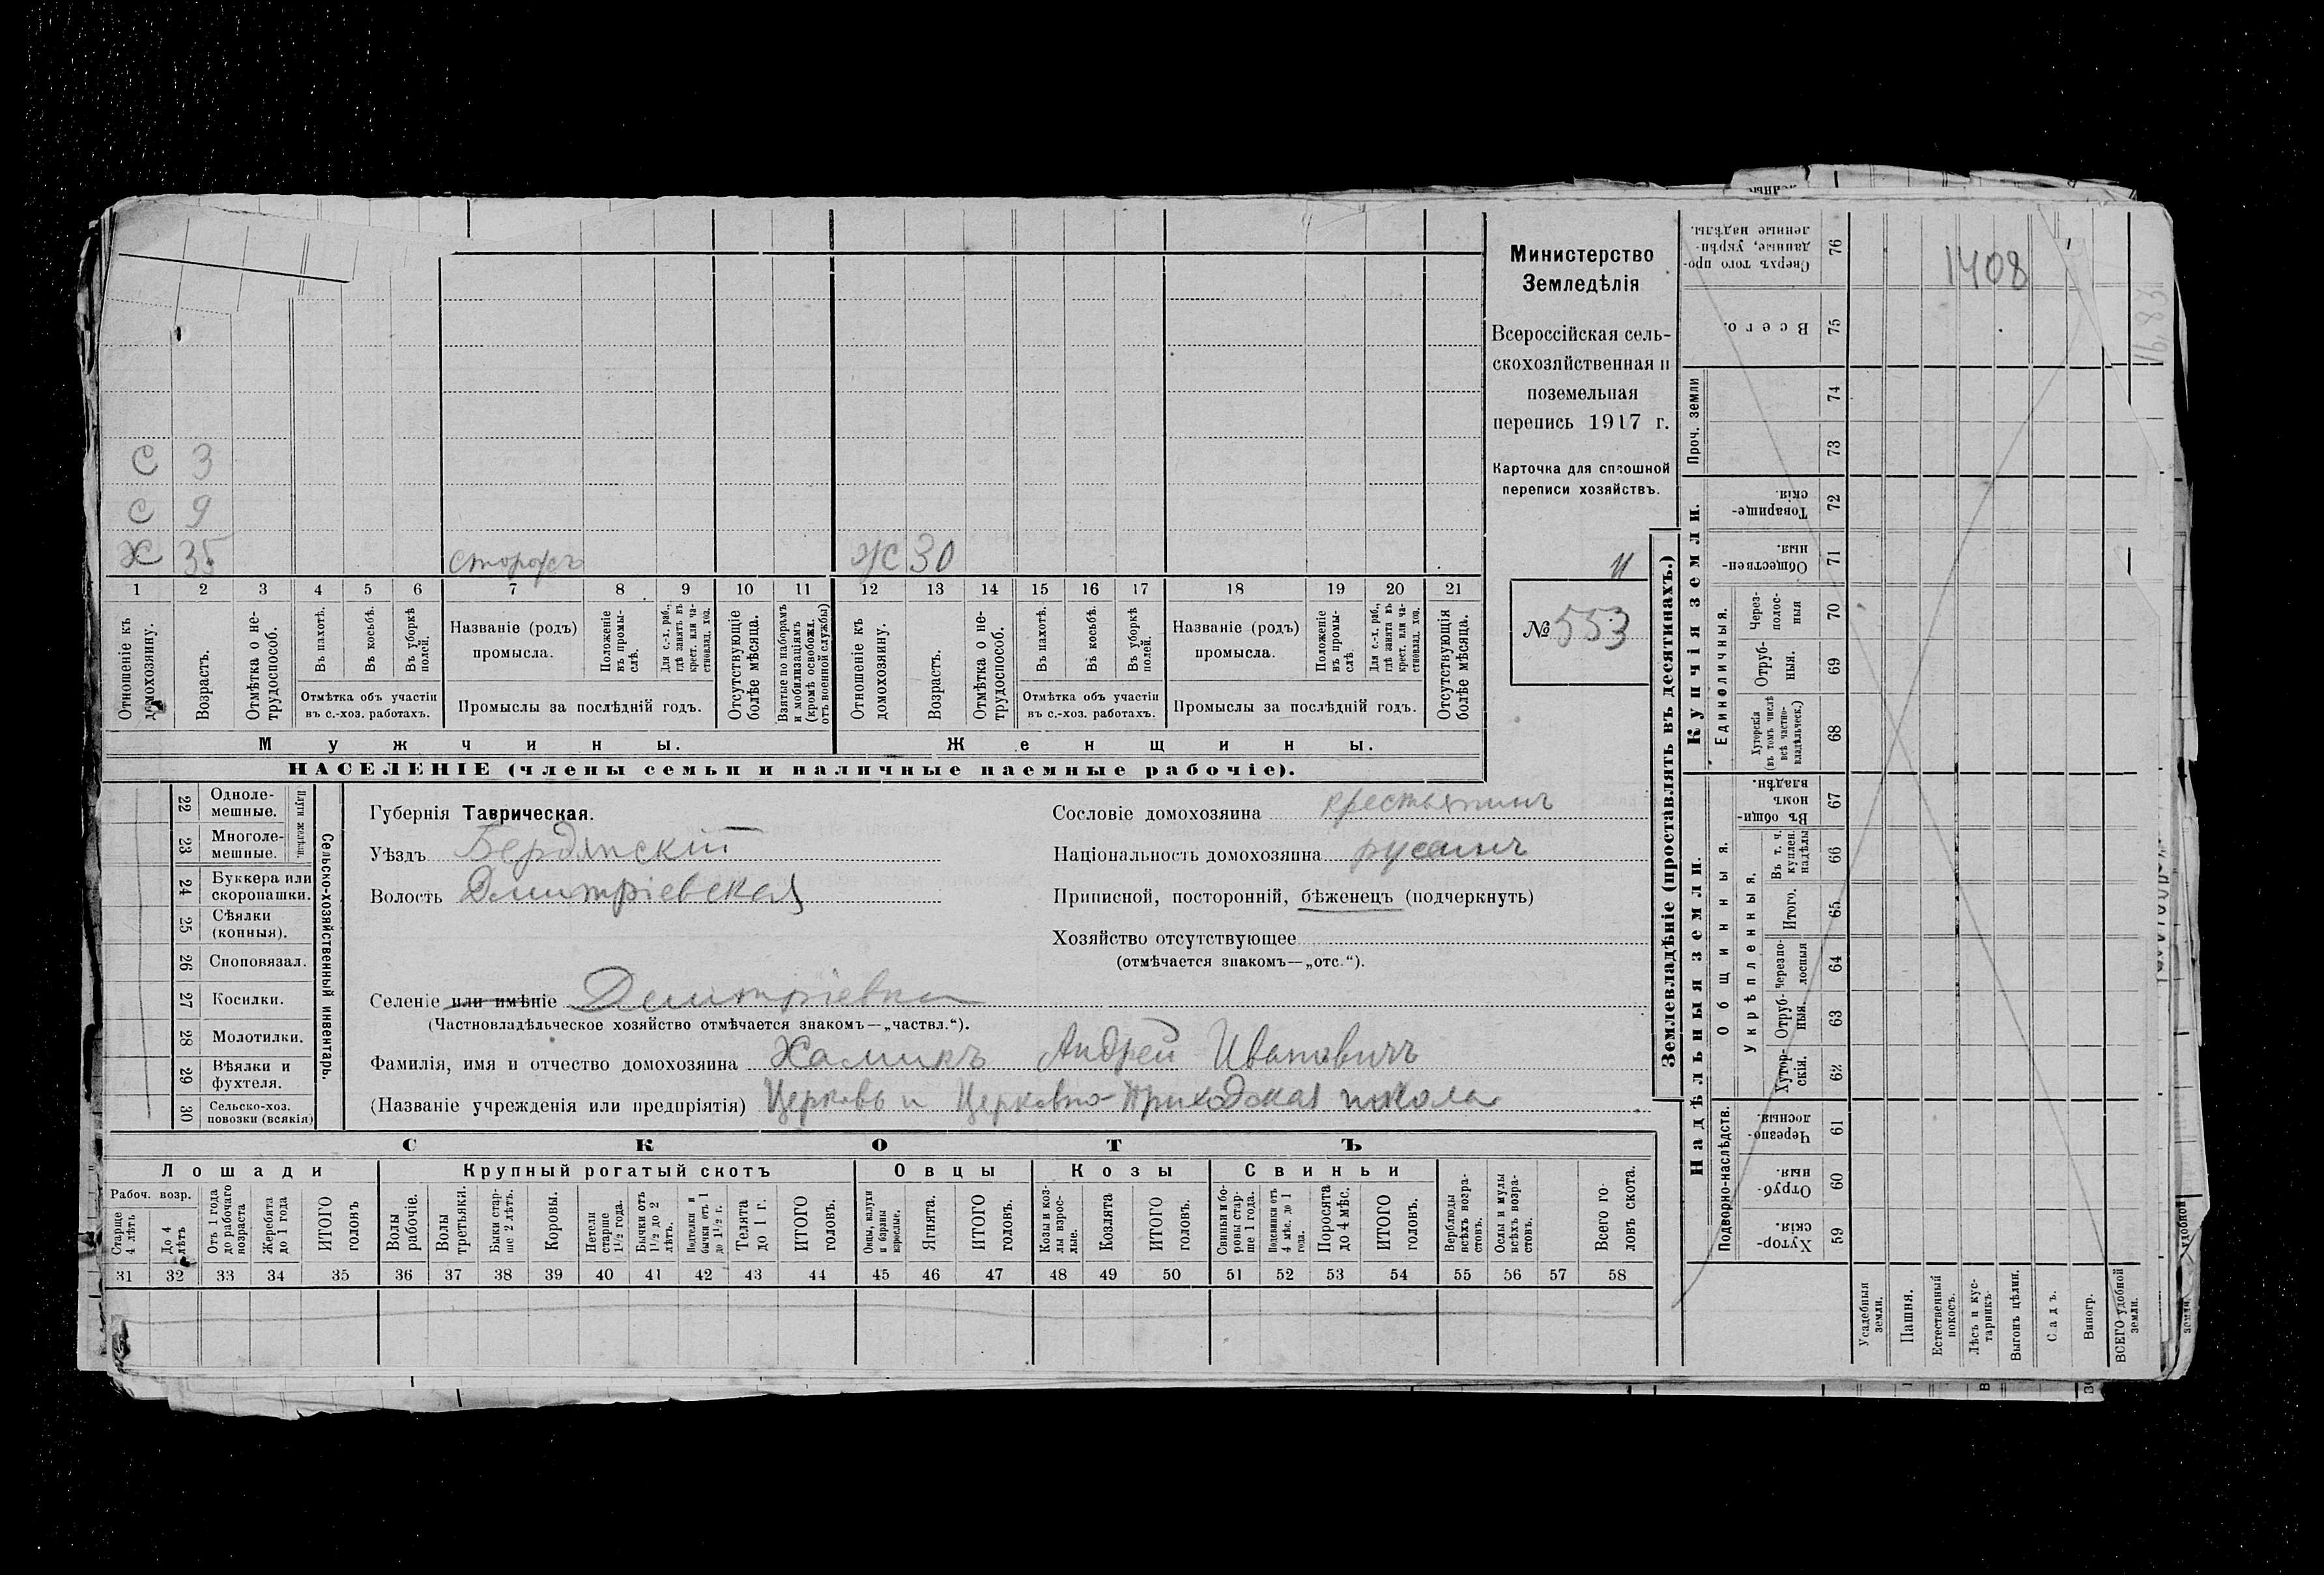 1408
С 3
С 9
Х 35 сторожъ Ж 30
1 2 3 4 5 6 7 8 9 10 11 12 13 14 15 16 17 18 19 20 21
Отношеніе къ домохозяину.
Возрастъ.
Отмѣтка о нетрудоспособ.
Въ пахотѣ.
Въ косьбѣ.
Въ уборкѣ полей.
Отмѣтка объ участіи
въ с.-хоз. работахъ.
Названіе (родъ)
промысла.
Положеніе въ промыслѣ.
Для с.-х. раб., гдѣ занятъ въ крест. или частновлад. хоз.
Промыслы за послѣдній годъ.
Отсутствующіе болѣе мѣсяца.
Взятые по наборамъ и мобилизаціямъ (кромѣ освобожд. отъ военной службы)
Отношеніе къ домохозяину.
Возрастъ.
Отмѣтка о нетрудоспособ.
Въ пахотѣ.
Въ косьбѣ.
Въ уборкѣ полей.
Отмѣтка объ участіи
въ с.-хоз. работахъ.
Названіе (родъ)
промысла.
Положеніе въ промыслѣ.
Для с.-х. раб., гдѣ занята въ крест. или частновлад. хоз.
Промыслы за послѣдній годъ.
Отсутствующія болѣе мѣсяца.
Мужчины. Женщины.
НАСЕЛЕНІЕ (члены семьи и наличные наемные рабочіе).
Министерство
Земледѣлія
Всероссійская сель-
скохозяйственная и
поземельная
перепись 1917 г.
Карточка для сплошной
переписи хозяйствъ.
11
№ 553
Сельско-хозяйственный инвентарь.
Плуги желѣзн.
22 Одноле-
мешные.
23 Многоле-
мешные.
24 Буккера или
скоропашки.
25 Сѣялки
(конныя).
26 Сноповязал.
27 Косилки.
28 Молотилки.
29 Вѣялки и
фухтеля.
30 Сельско-хоз.
повозки (всякія)
Губернія Таврическая.
Уѣздъ Бердянскій
Волость Дмитріевская
Сословіе домохозяина крестьянинъ
Національность домохозяина русинъ
Приписной, посторонній, бѣженецъ (подчеркнуть)
Хозяйство отсутствующее
(отмѣчается знакомъ—„отс.“).
Селеніе или имѣніе Дмитріевка
(Частновладѣльческое хозяйство отмѣчается знакомъ—„частвл.“).
Фамилія, имя и отчество домохозяина Хамикъ Андрей Ивановичъ
(Названіе учрежденія или предпріятія) Церковь и Церковно-Приходская школа
СКОТЪ
Лошади Крупный рогатый скотъ Овцы Козы Свиньи
Рабоч. возр.
Старше 4 лѣтъ
До 4 лѣтъ
Отъ 1 года до рабочаго возраста
Жеребята до 1 года
ИТОГО головъ
Волы рабочіе.
Волы третьяки.
Быки старше 2 лѣтъ.
Коровы.
Нетели старше 1½ года.
Бычки отъ 1½ до 2 лѣтъ.
Подтелки и бычки отъ 1 до 1½ г.
Телята до 1 г.
ИТОГО головъ.
Овцы, валухи и бараны взрослые.
Ягнята.
ИТОГО головъ.
Козы и козлы взрослые.
Козлята
ИТОГО головъ.
Свиньи и боровы старше 1 года.
Подсвинки отъ 4 мѣс. до 1 года.
Поросята до 4 мѣс.
ИТОГО головъ.
Верблюды всѣхъ возрастовъ.
Ослы и мулы всѣхъ возрастовъ.
Всего головъ скота.
31 32 33 34 35 36 37 38 39 40 41 42 43 44 45 46 47 48 49 50 51 52 53 54 55 56 57 58
Землевладѣніе (проставлять въ десятинахъ.)
Надѣльныя земли.
Купчія земли.
Проч. земли
Подворно-наслѣдств.
Общинныя.
Укрѣпленныя.
Единоличныя.
Хуторскія. 59
Отрубныя. 60
Черезполосныя. 61
Хуторскія. 62
Отрубныя. 63
Черезполосныя 64
Итого. 65
Въ т. ч. куплен. надѣлы 66
Въ общинномъ владѣн. 67
Хуторскія (въ томъ числѣ всѣ частновладѣльческ.) 68
Отрубныя. 69
Черезполосныя 70
Общественныя. 71
Товарищескія. 72
73
74
Всего. 75
Сверхъ того проданные, укрѣпленные надѣлы. 76
Усадебныя земли.
Пашня.
Естественный покосъ.
Лѣсъ и кустарникъ.
Выгонъ цѣлин.
Садъ.
Виногр.
ВСЕГО удобной земли.